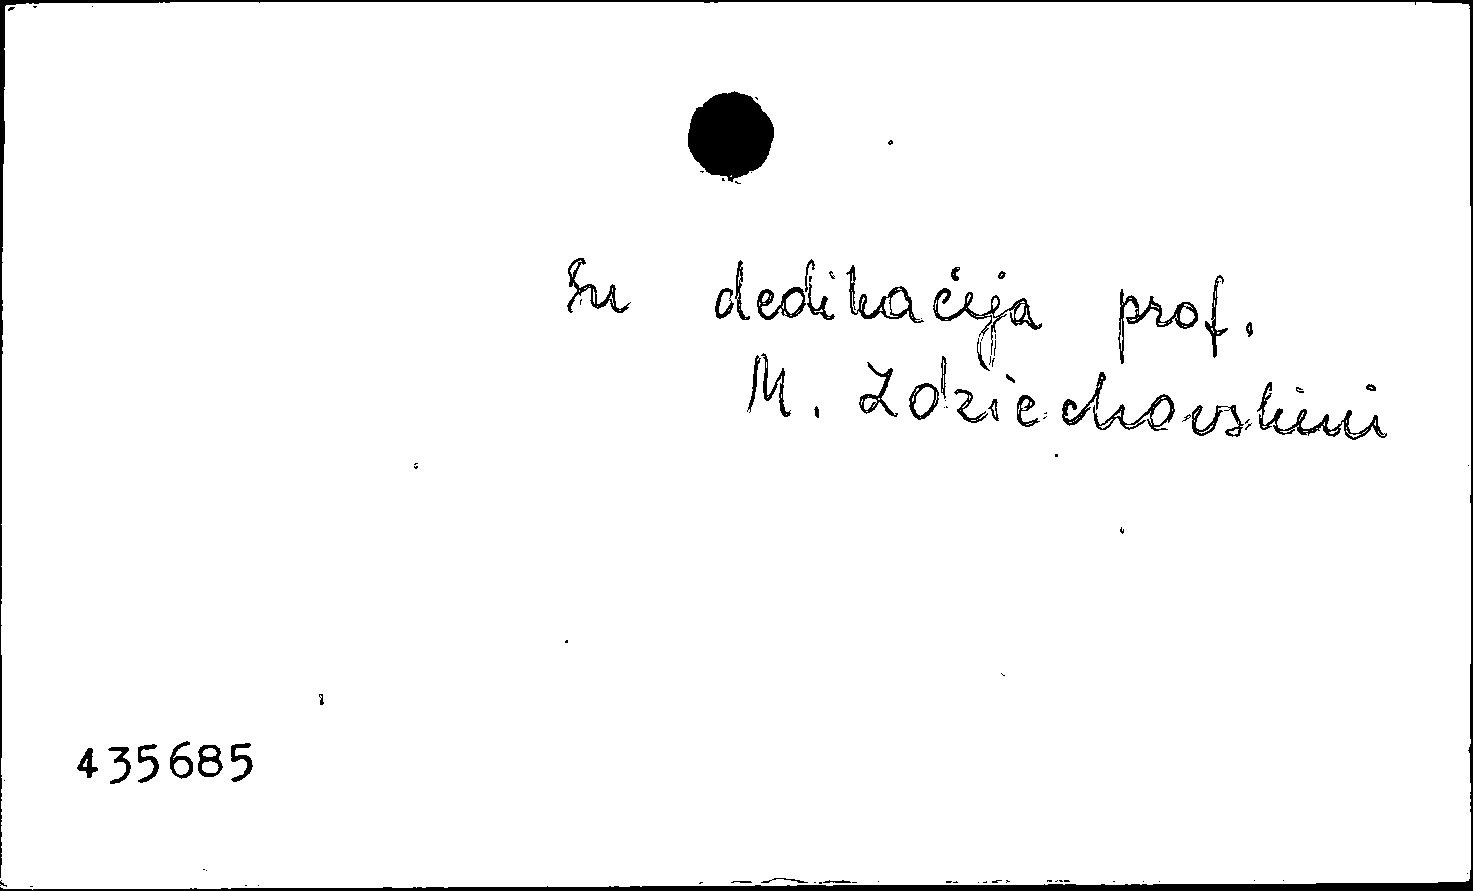 Su dedikacija prof.
M. Zdziechovskiui
435685